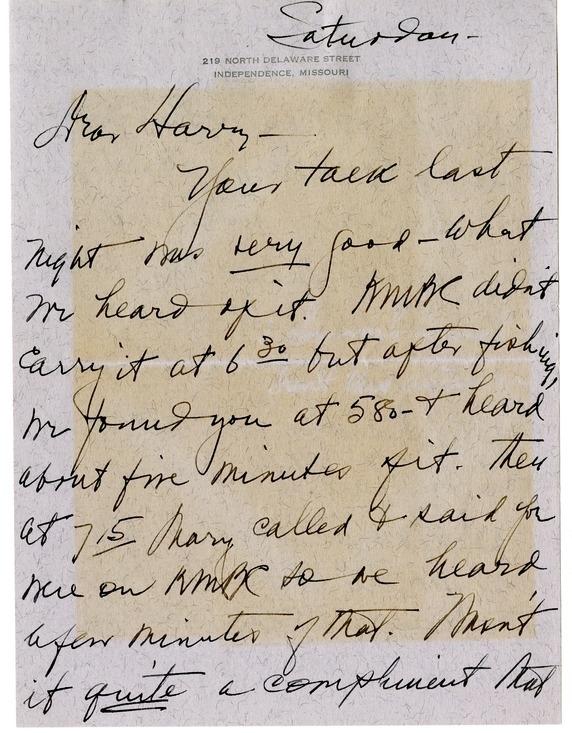 Saturday-
219 NORTH DELAWARE STREET
INDEPENDENCE, MISSOURI
Dear Harry—
Your talk last
night was very good - what
we heard of it. KMBC didn't
carry it at 6 30 but after fishing,
we found you at 580 - & heard
about five minutes of it. Then
at 7 15 Mary called & said you
were on KMBC so we heard
a few minutes of that. Wasn't
it quite a compliment that